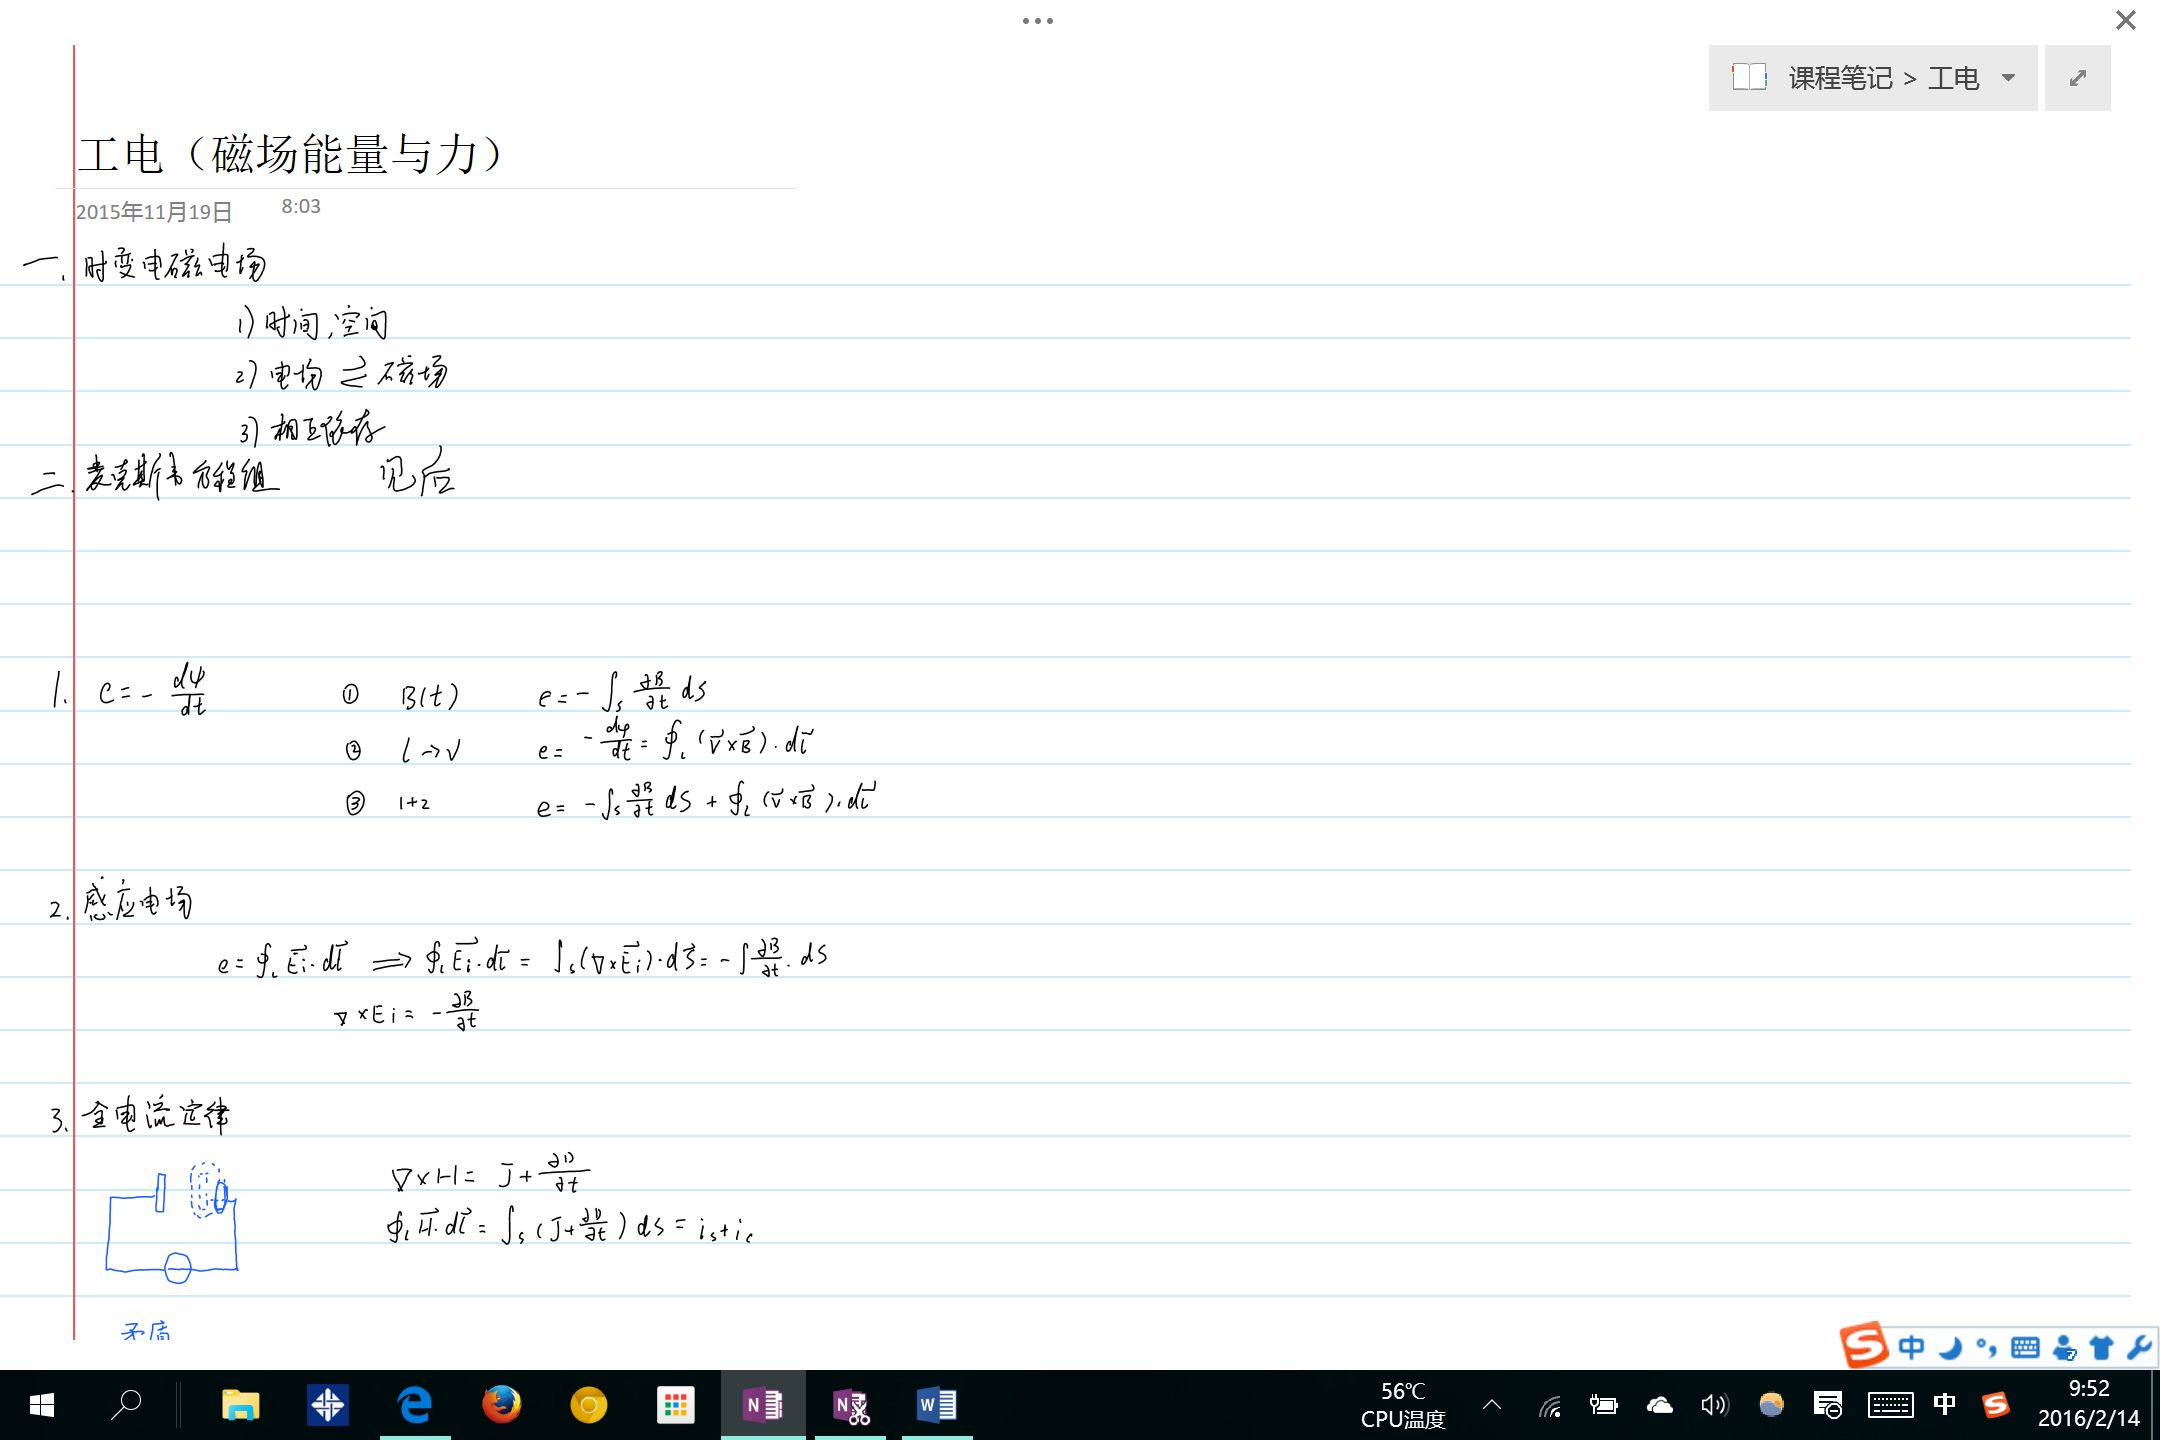 课程笔记 > 工电
工电（磁场能量与力）
2015年11月19日 8:03
一. 时变电磁电场
1) 时间,空间
2) 电场 ⇌ 磁场
3) 相互依存
二. 麦克斯韦方程组 见后
1. e = - dψ/dt ① B(t) e = - ∫s ∂B/∂t ds
② l → v e = - dφ/dt = ∮l (v⃗×B⃗)·dl⃗
③ 1+2 e = - ∫s ∂B/∂t ds + ∮l (v⃗×B⃗)·dl⃗
2. 感应电场
e = ∮l E⃗i·dl⃗ ⟹ ∮l E⃗i·dl⃗ = ∫s (∇×E⃗i)·ds⃗ = - ∫ ∂B/∂t · ds
∇×Ei = - ∂B/∂t
3. 全电流定律
∇×H = J + ∂D/∂t
∮l H⃗·dl⃗ = ∫s (J + ∂D/∂t) ds = is + ic
矛盾
中
56℃
CPU温度
中
9:52
2016/2/14